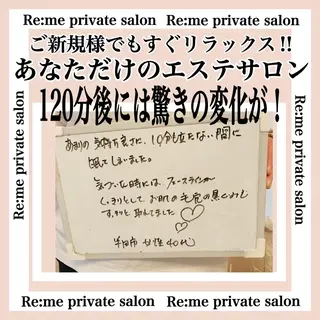 Re:me private salon
Re:me private salon
ご新規様でもすぐリラックス!!
あなただけのエステサロン
120分後には驚きの変化が!
Re:me private salon
Re:me private salon
あまりの気持ち良さに、10分も立たない間に
眠ってしまいました。
気づいた時には、フェースラインが
くっきりとして、お肌の毛穴の黒ずみも
すっきりと取れてました♡♡
半田市 女性 40代
Re:me private salon
Re:me private salon